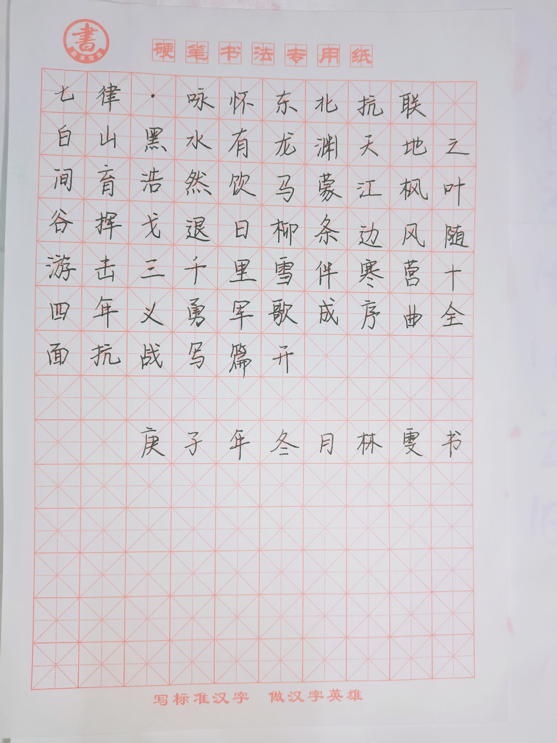 書
硬笔书法专用纸
七律·咏怀东北抗联
白山黑水有龙渊天地之
间育浩然饮马蒙江枫叶
谷挥戈退日柳条边风随
游击三千里雪伴寒营十
四年义勇军歌成序曲全
面抗战写篇开
庚子年冬月林雯书
写标准汉字 做汉字英雄